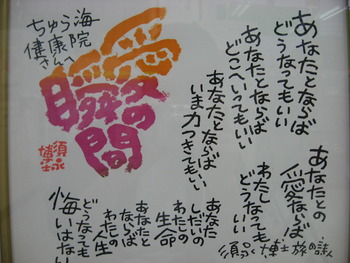 ちゅう海
健康院
さんへ
愛の
瞬間
須永
博士
あなたとならば
どうなってもいい
あなたとならば
どこへいってもいい
あなたとならば
いま力つきてもいい
あなたとの
愛ならば
どうなってもいい
あなた
しだいの
わたしの
生命
あなたと
ならば
わたしの
人生
どうなっても
悔いはない
須永博士 旅の詩人